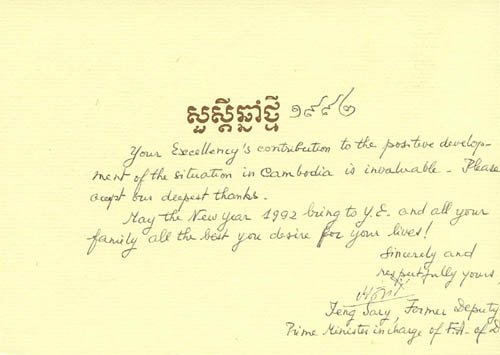 សួស្តីឆ្នាំថ្មី ១៩៩២
Your Excellency's contribution to the positive develop-
ment of the situation in Cambodia is invaluable. Please
accept our deepest thanks.
May the New Year 1992 bring to Y.E. and all your
family all the best you desire for your lives!
Sincerely and
respectfully yours,
Ieng Sary, Former Deputy
Prime Minister in charge of F.A. of D